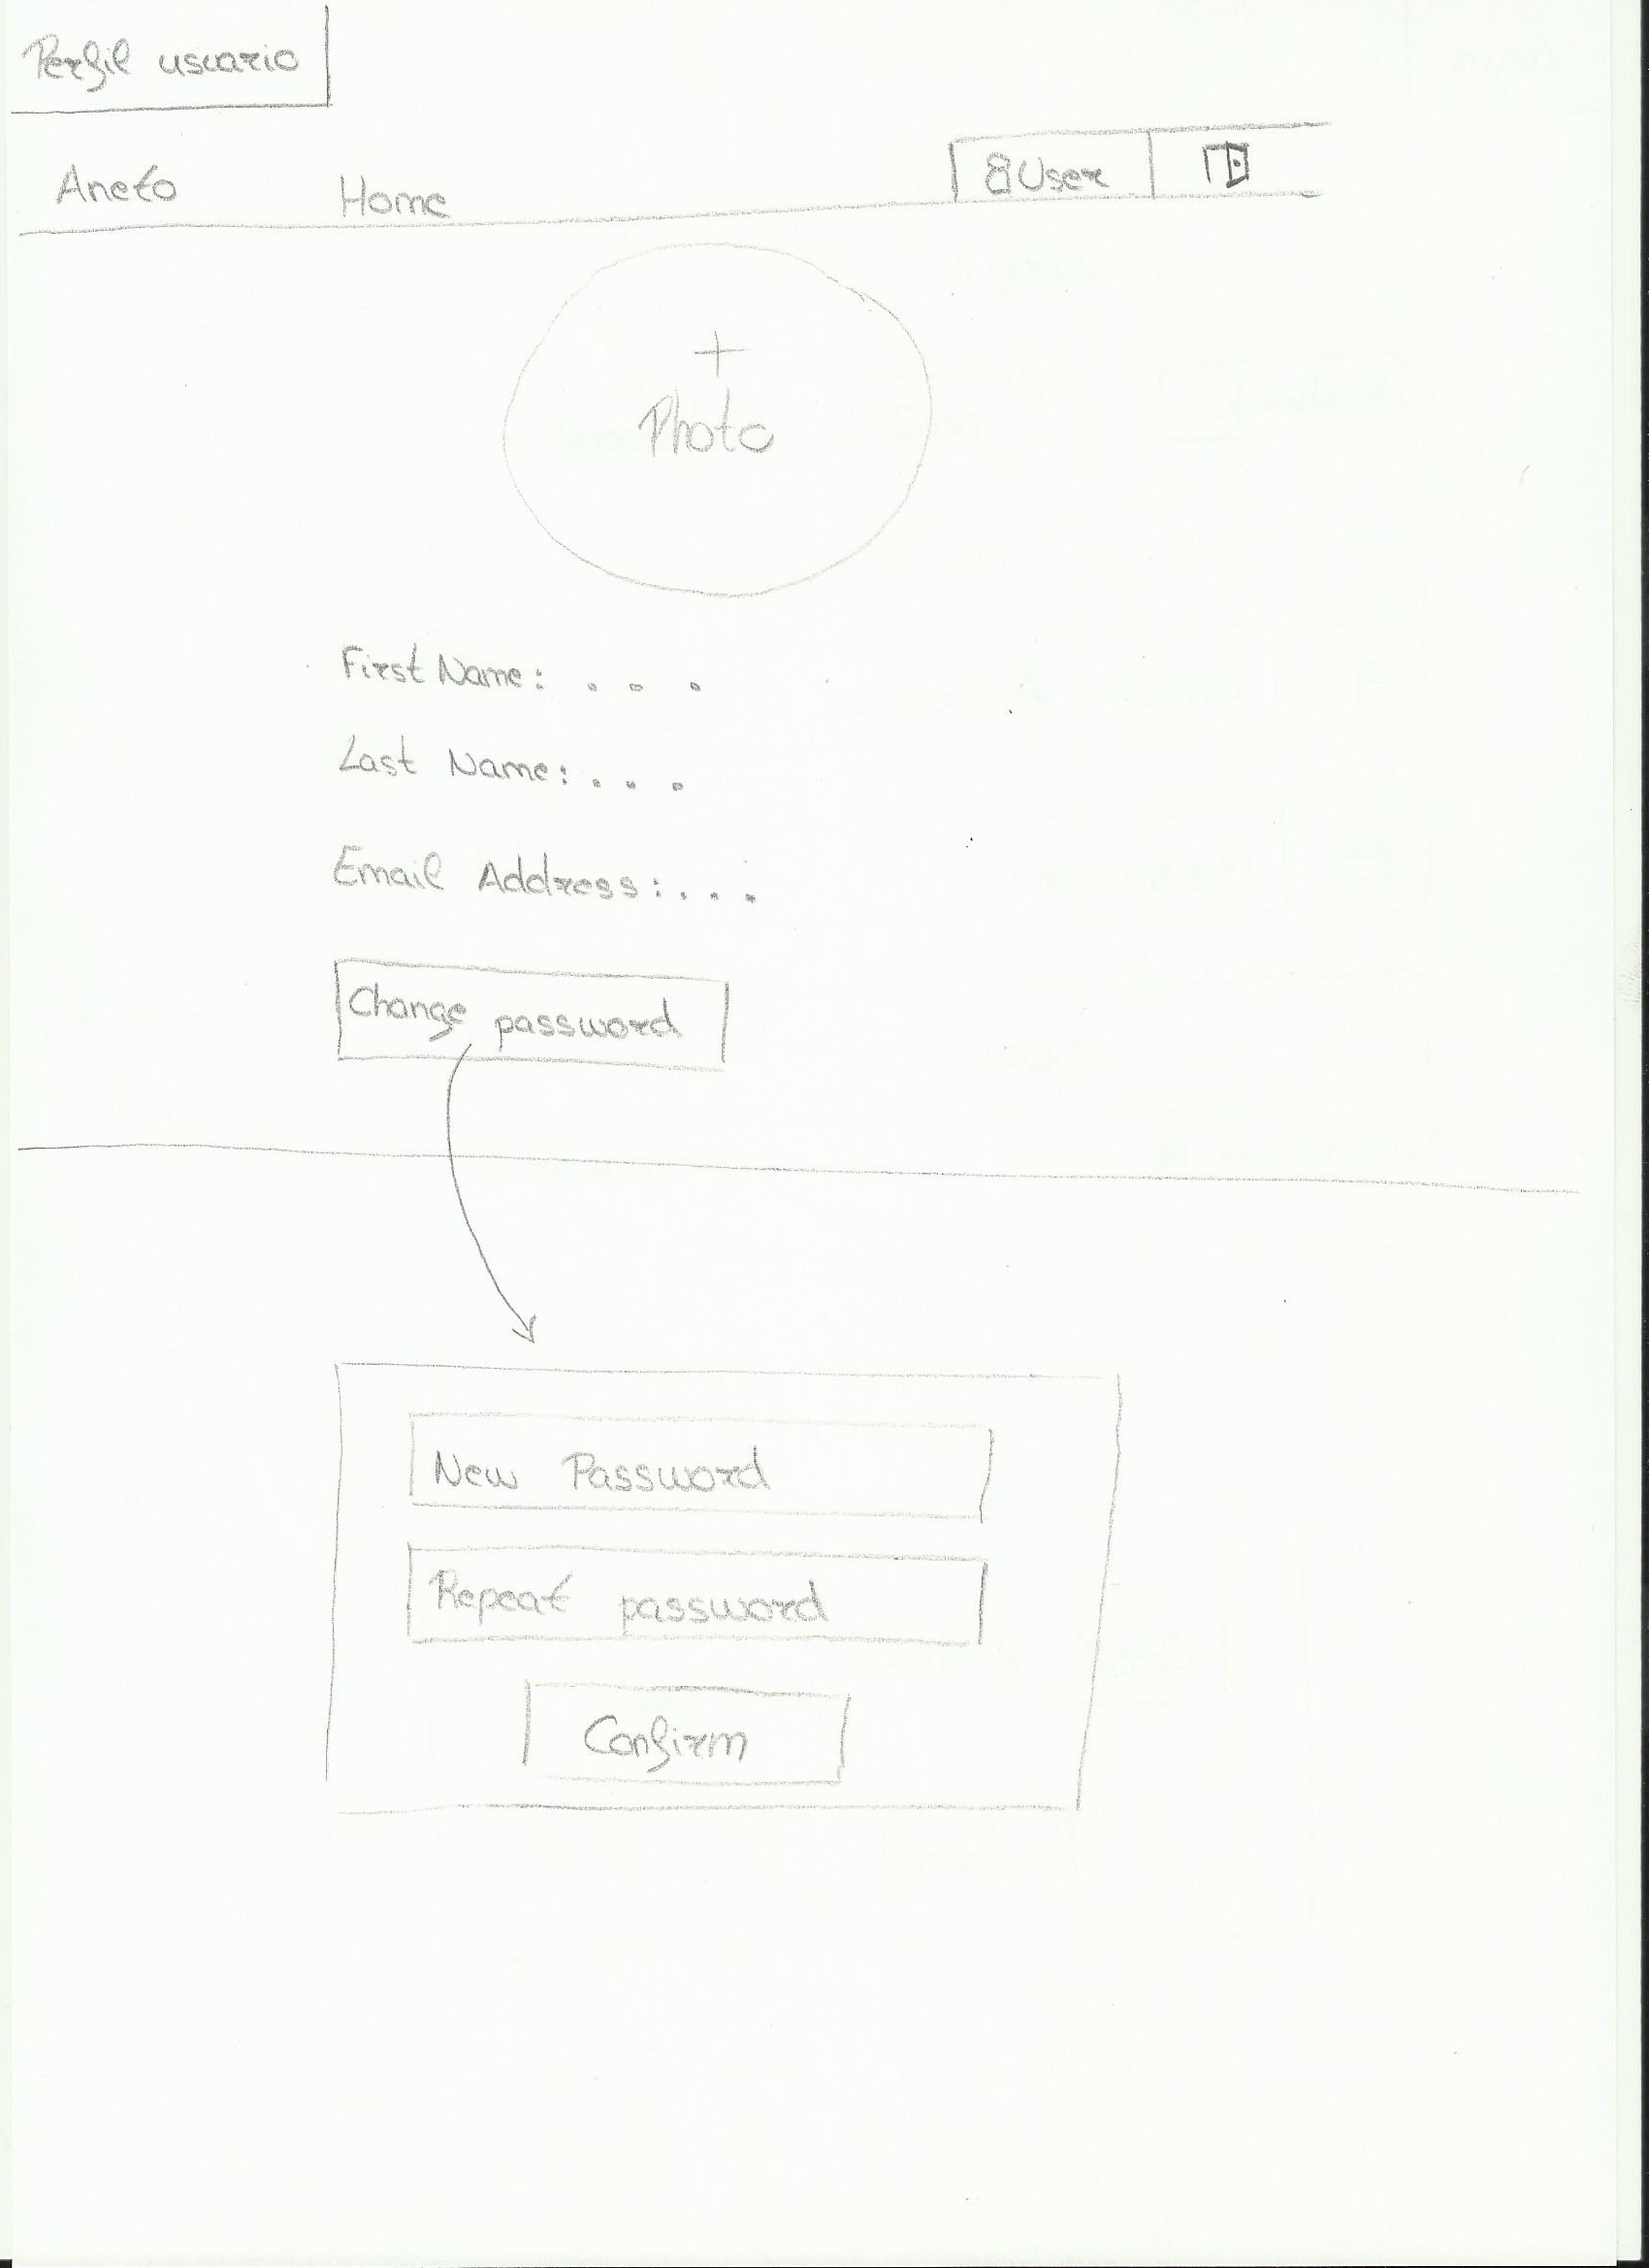 Perfil usuario
Aneto Home User
+
Photo
First Name: . . .
Last Name: . . .
Email Address: . . .
Change password
New Password
Repeat password
Confirm